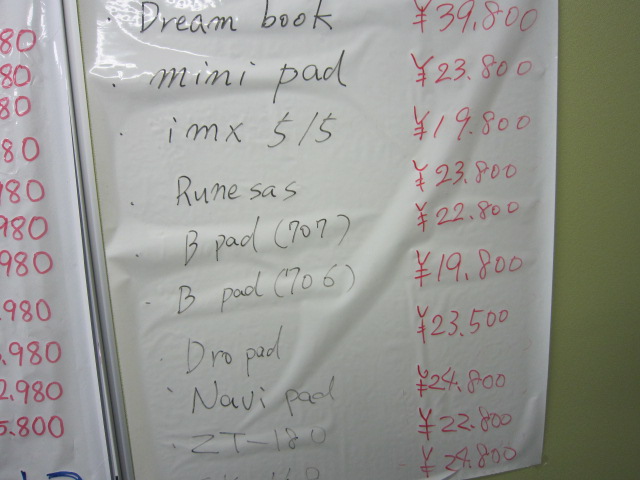 80
80
80
80
980
980
980
.980
.980
2.980
5.800
· Dream book ¥39,800
· mini pad ¥23.800
· imx 515 ¥19.800
· Runesas ¥23.800
· B pad (707) ¥22.800
· B pad (706) ¥19.800
· Dropad ¥23.500
· Navi pad ¥24.800
· ZT-180 ¥22.800
¥24.800